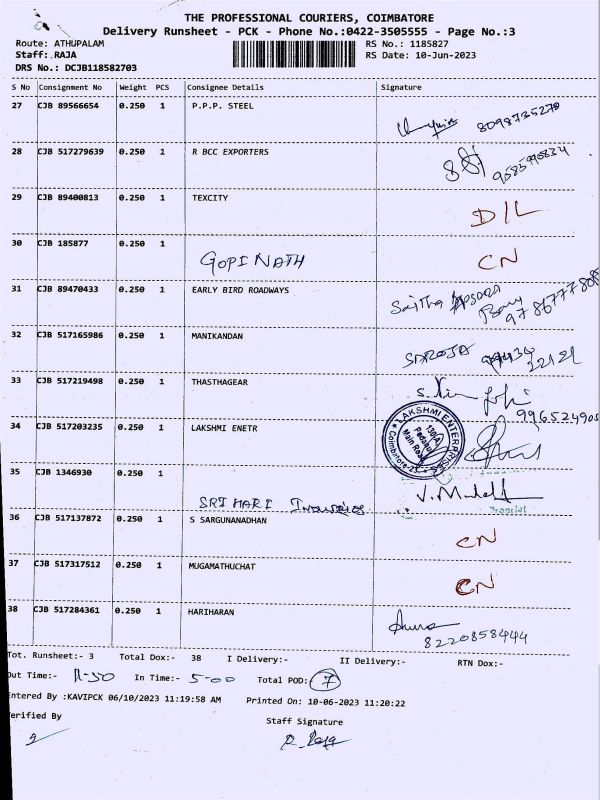 THE PROFESSIONAL COURIERS, COIMBATORE
Delivery Runsheet - PCK - Phone No.:0422-3505555 - Page No.:3
Route: ATHUPALAM RS No.: 1185827
Staff: RAJA RS Date: 10-Jun-2023
DRS No.: DCJB118582703
S No Consignment No Weight PCS Consignee Details Signature
27 CJB 89566654 0.250 1 P.P.P. STEEL 8098735270
28 CJB 517279639 0.250 1 R BCC EXPORTERS
29 CJB 89400813 0.250 1 TEXCITY D/L
30 CJB 185877 0.250 1 GOPINATH CN
31 CJB 89470433 0.250 1 EARLY BIRD ROADWAYS
32 CJB 517165986 0.250 1 MANIKANDAN SAROJA
33 CJB 517219498 0.250 1 THASTHAGEAR 996524905
34 CJB 517203235 0.250 1 LAKSHMI ENETR LAKSHMI ENTERPRISES
35 CJB 1346930 0.250 1 SRI HARI Industries
36 CJB 517137872 0.250 1 S SARGUNANADHAN CN
37 CJB 517317512 0.250 1 MUGAMATHUCHAT CN
38 CJB 517284361 0.250 1 HARIHARAN 8220858444
Tot. Runsheet:- 3 Total Dox:- 38 I Delivery:- II Delivery:- RTN Dox:-
Out Time:- 11-50 In Time:- 5-00 Total POD:- 7
Entered By :KAVIPCK 06/10/2023 11:19:58 AM Printed On: 10-06-2023 11:20:22
erified By Staff Signature